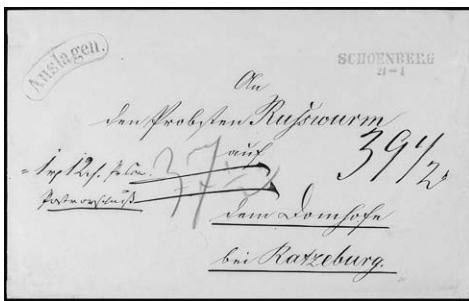 Auslagen.
SCHOENBERG
21-4
An
den Probsten Rußwurm
auf
39 1/2
37 1/2
dem Domhofe
bei Ratzeburg.